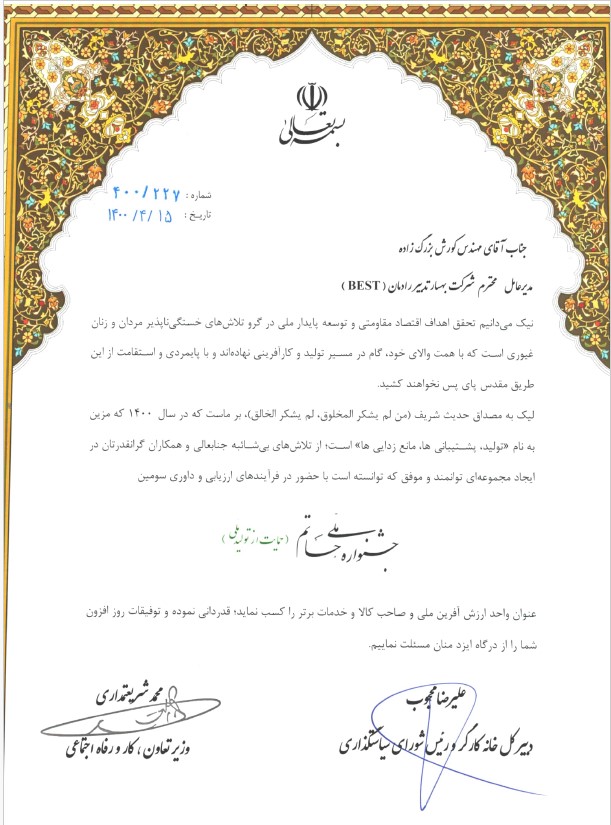 بسمه تعالی
شماره : ۴۰۰/۲۲۷
تاریخ : ۱۴۰۰/۴/۱۵
جناب آقای مهندس کورش بزرگ زاده
مدیرعامل محترم شرکت بهساز تدبیر رادمان ( BEST )
نیک می‌دانیم تحقق اهداف اقتصاد مقاومتی و توسعه پایدار ملی در گرو تلاش‌های خستگی‌ناپذیر مردان و زنان
غیوری است که با همت والای خود، گام در مسیر تولید و کارآفرینی نهاده‌اند و با پایمردی و استقامت از این
طریق مقدس پای پس نخواهند کشید.
لیک به مصداق حدیث شریف (من لم یشکر المخلوق، لم یشکر الخالق)، بر ماست که در سال ۱۴۰۰ که مزین
به نام «تولید، پشتیبانی ها، مانع زدایی ها» است؛ از تلاش‌های بی‌شائبه جنابعالی و همکاران گرانقدرتان در
ایجاد مجموعه‌ای توانمند و موفق که توانسته است با حضور در فرآیندهای ارزیابی و داوری سومین
جشنواره ملی حاتم (حمایت از تولید ملی)
عنوان واحد ارزش آفرین ملی و صاحب کالا و خدمات برتر را کسب نماید؛ قدردانی نموده و توفیقات روز افزون
شما را از درگاه ایزد منان مسئلت نماییم.
علیرضا محجوب
دبیرکل خانه کارگر و رئیس شورای سیاستگذاری
محمد شریعتمداری
وزیر تعاون، کار و رفاه اجتماعی